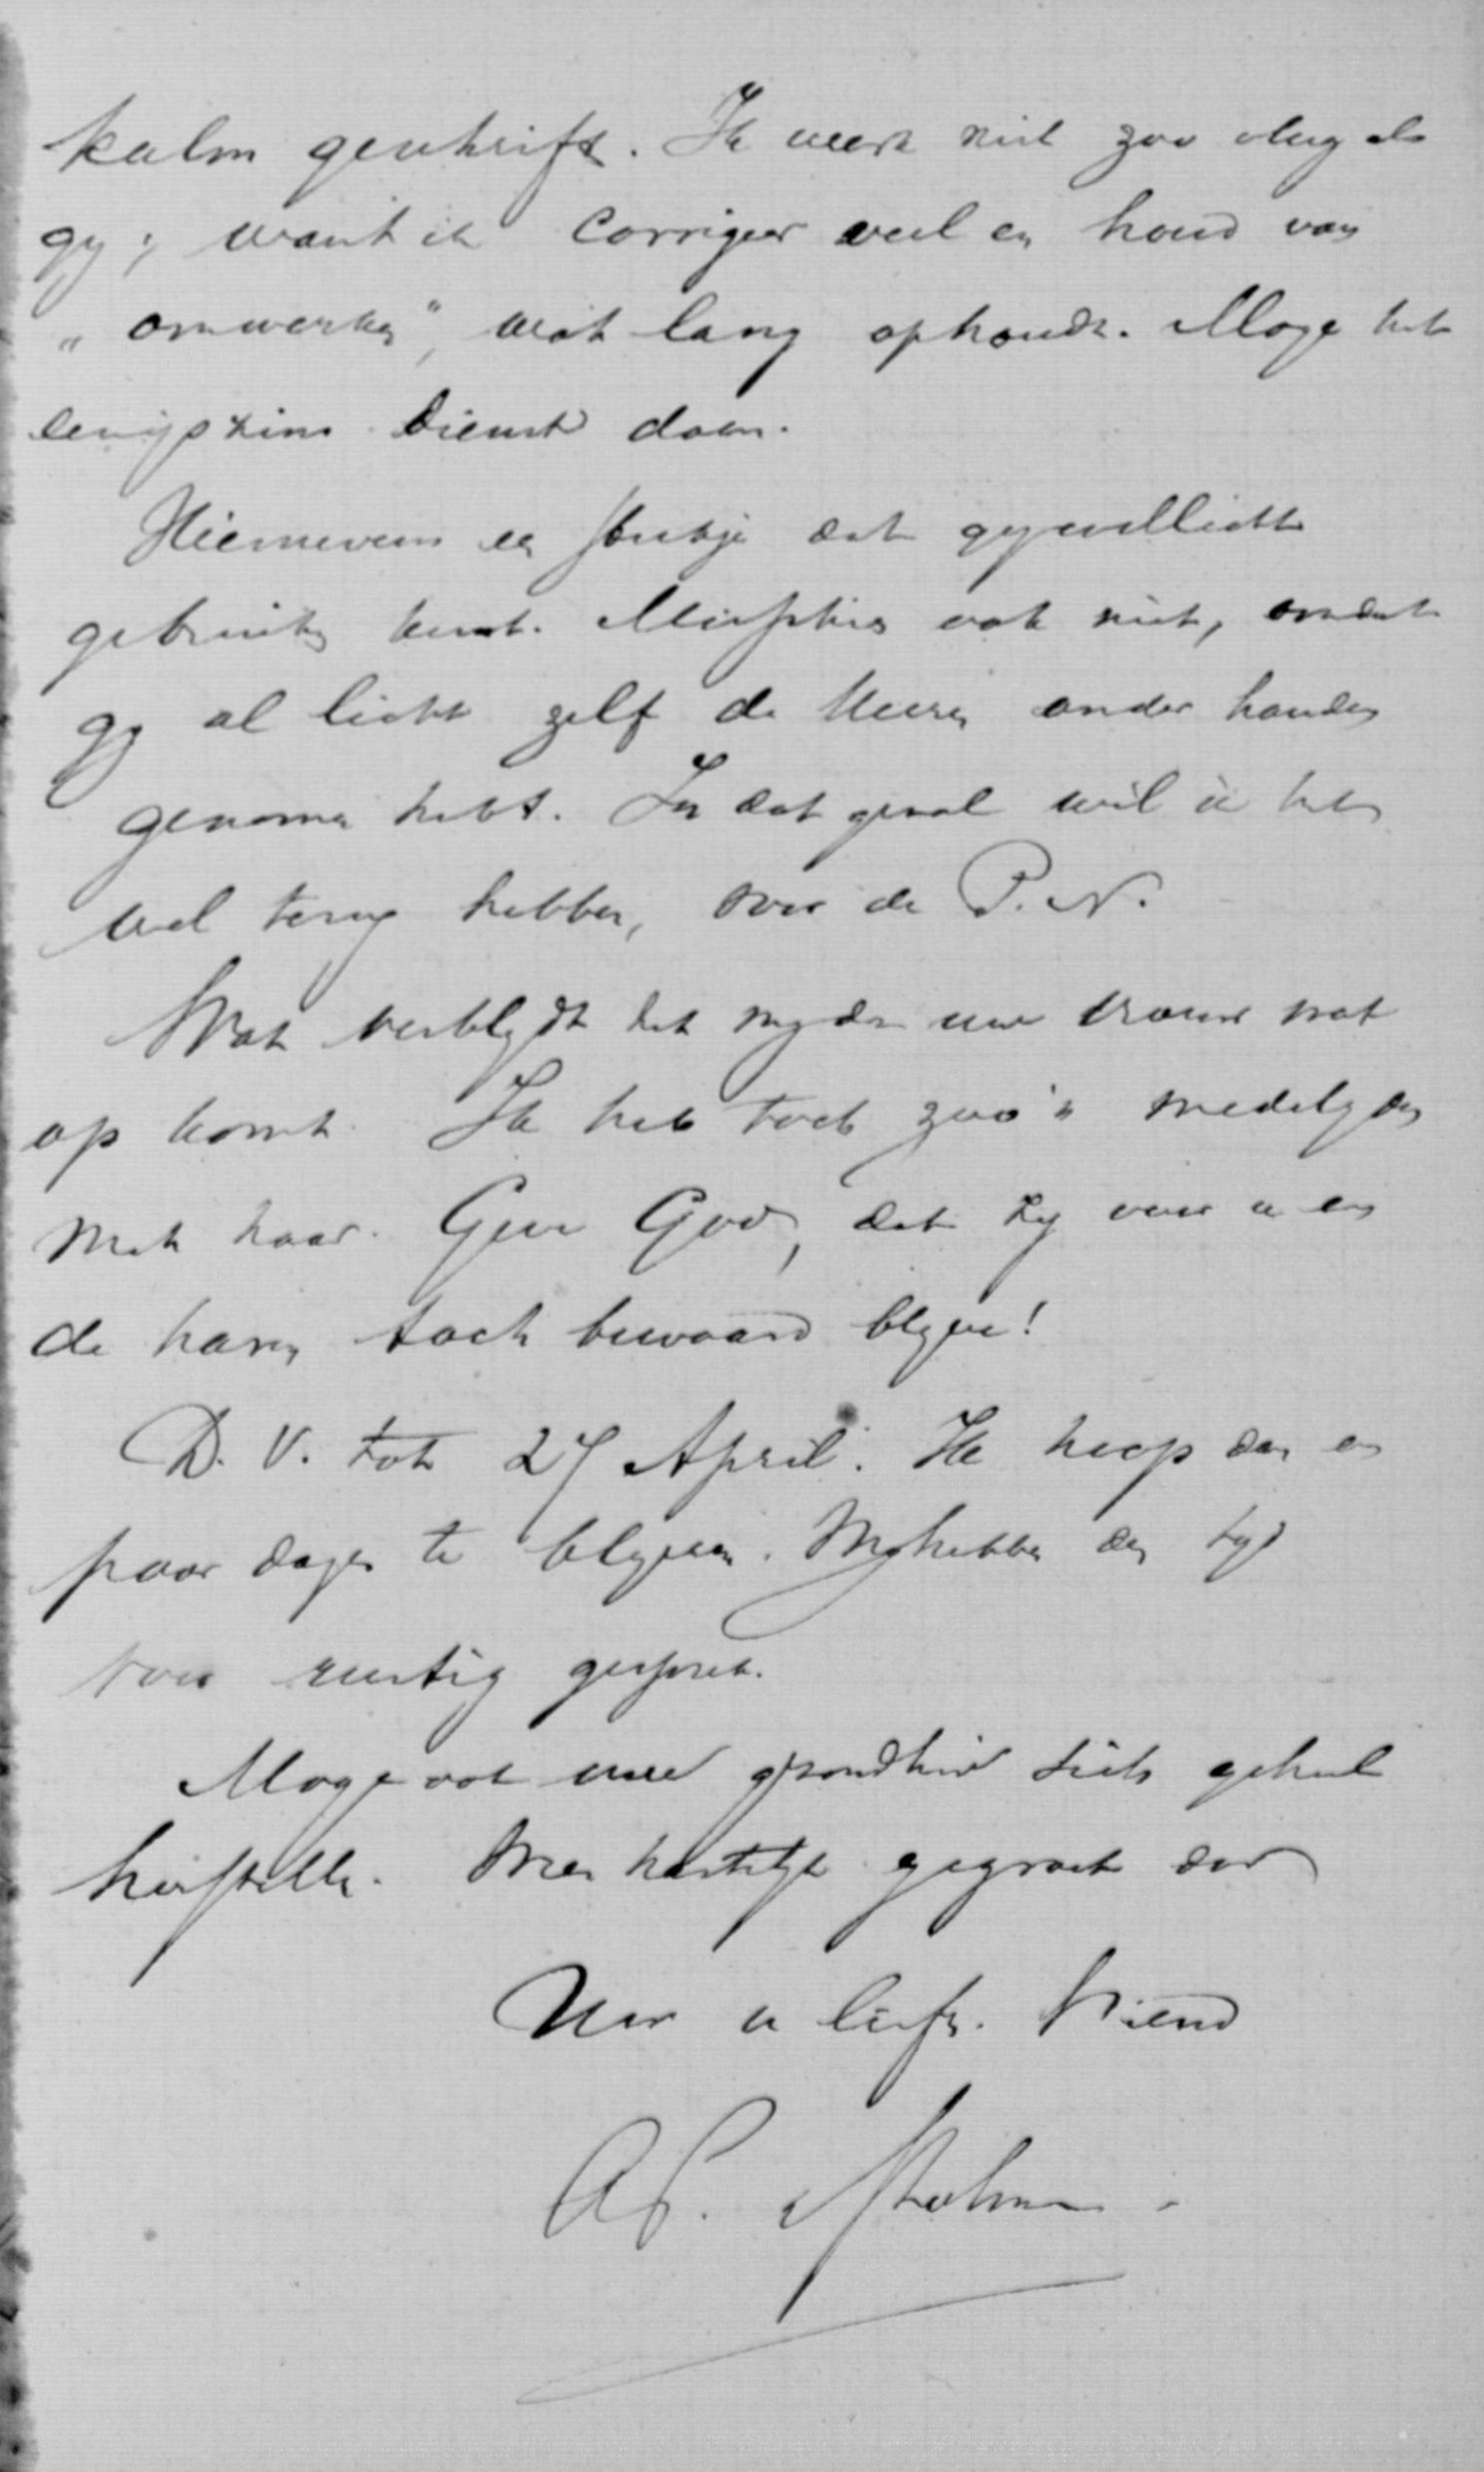 kalm geschrift. Ik werk niet zoo vlug als
gij; want ik corrigeer veel en houd van
„omwerken", wat lang ophoudt. Moge het
eenigszins dienst doen.
Hiernevens een stukje dat gij wellicht
gebruiken kunt. Misschien ook niet, omdat
gij al licht zelf de heeren onder handen
genomen hebt. In dat geval wil ik het
wel terug hebben, voor de P. N.
Wat verblijdt het mij dat uw vrouw wat
op komt. Ik heb toch zoo'n medelijden
met haar. Geve God, dat zij voor u en
de haren toch bewaard blijve!
D. V. tot 27 April. Ik hoop dan een
paar dagen te blijven. Wij hebben dan tijd
voor rustig gesprek.
Moge ook uwe gezondheid zich geheel
herstellen. Wees hartelijk gegroet door
Uw u liefh. vriend